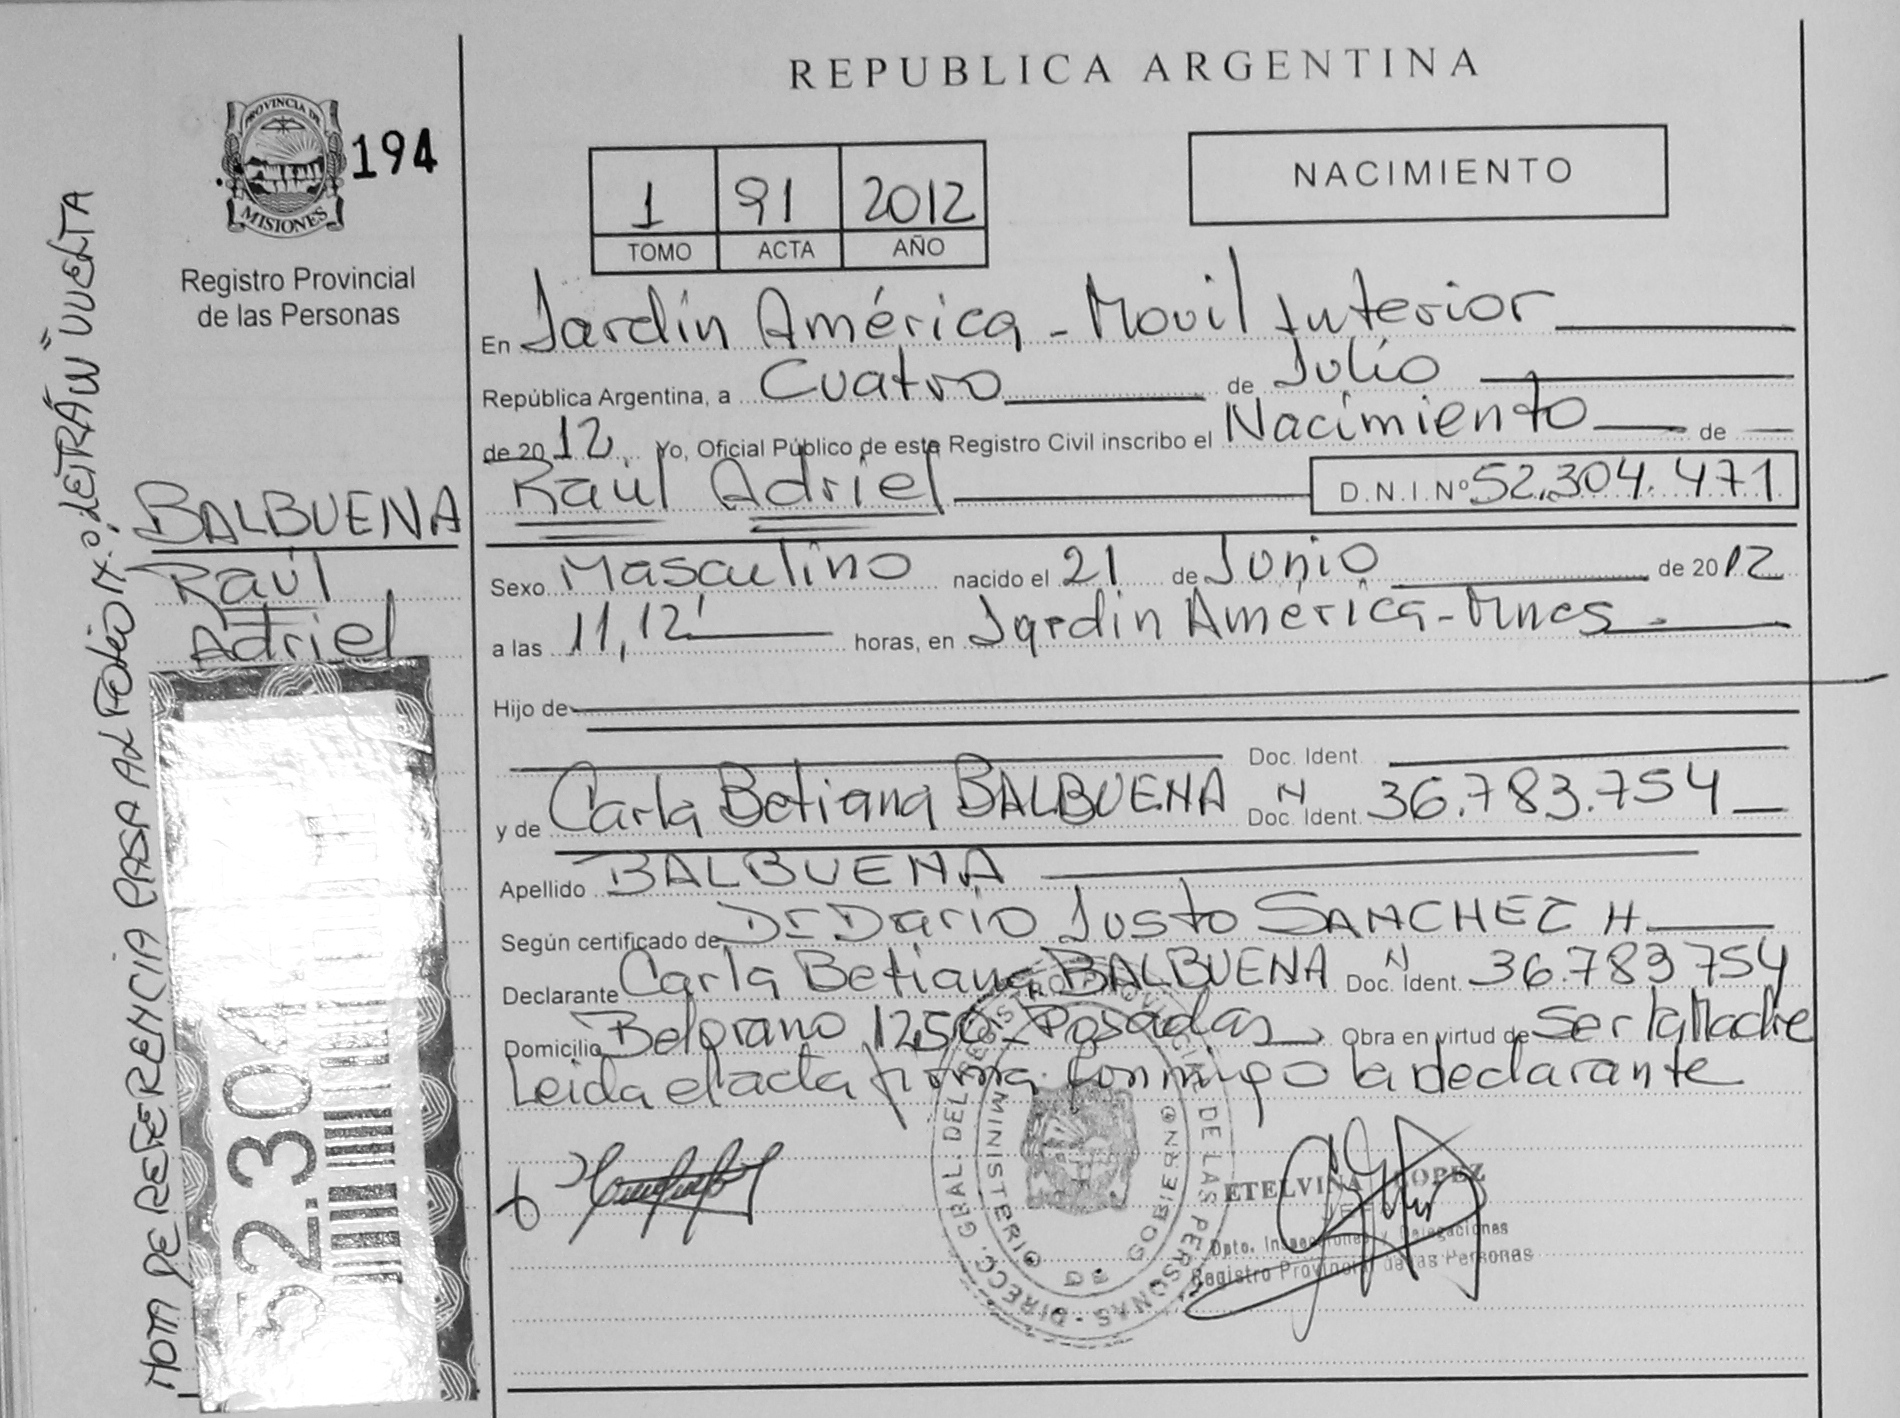 REPUBLICA ARGENTINA
PROVINCIA DE
MISIONES
194
Registro Provincial
de las Personas
1 91 2012
TOMO ACTA AÑO
NACIMIENTO
En Jardín América - Movil Interior
República Argentina, a Cuatro de Julio
de 2012. Yo, Oficial Público de este Registro Civil inscribo el Nacimiento de
Raúl Adriel D.N.I.Nº 52.304.471
BALBUENA
Raúl
Adriel
Sexo Masculino nacido el 21 de Junio de 2012
a las 11,12' horas, en Jardin América-Mnes.
Hijo de
Doc. Ident.
y de Carla Betiana BALBUENA N Doc. Ident. 36.783.754
Apellido BALBUENA
Según certificado de Dr Dario Justo SANCHEZ H.
Declarante Carla Betiana BALBUENA N Doc. Ident. 36.783754
Domicilio Belgrano 1250 - Posadas Obra en virtud de Ser la Madre
Leida el acta firma conmigo la declarante
DIRECC. GRAL. DEL REGISTRO PROVINCIAL DE LAS PERSONAS
MINISTERIO DE GOBIERNO
ETELVINA LOPEZ
JEFE
Dpto. Inspecciones y Delegaciones
Registro Provincial de las Personas
NOTA DE REFERENCIA PASA AL FOLIO Nº: LETRA "W" VUELTA
52.304